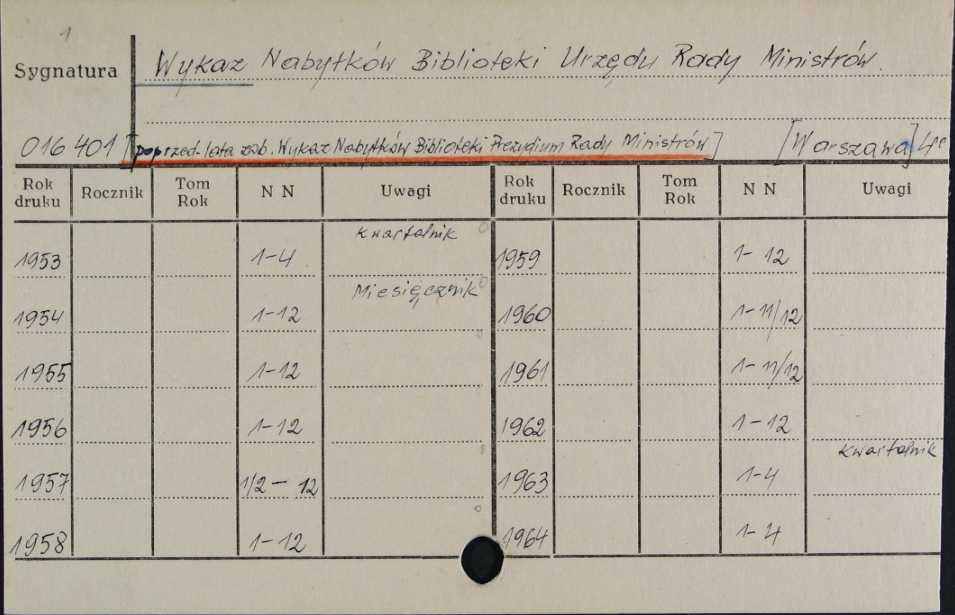 1
Sygnatura Wykaz Nabytków Biblioteki Urzędu Rady Ministrów.
016 401 [poprzed. lata zob. Wykaz Nabytków Biblioteki Prezydium Rady Ministrów] [Warszawa] 4°
Rok druku Rocznik Tom Rok N N Uwagi Rok druku Rocznik Tom Rok N N Uwagi
kwartalnik
1953 1-4 1959 1-12
Miesięcznik
1954 1-12 1960 1-11/12
1955 1-12 1961 1-11/12
1956 1-12 1962 1-12
kwartalnik
1957 1/2 - 12 1963 1-4
1958 1-12 1964 1-4